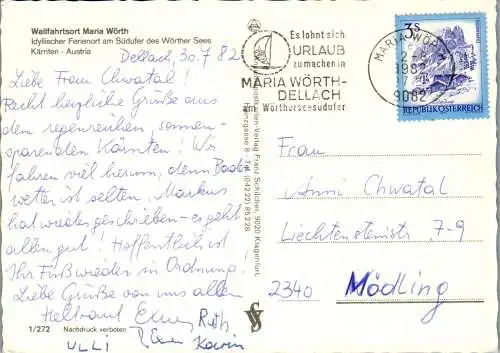 Wallfahrtsort Maria Wörth
Idyllischer Ferienort am Südufer des Wörther Sees
Kärnten - Austria
Dellach, 30.7.82
Liebe Frau Chwatal!
Recht herzliche Grüße aus
dem regenreichen, sonnen-
sparenden Kärnten! Wir
fahren viel herum, denn Bade-
wetter ist selten. Markus
hat wieder geschrieben - es geht
allen gut! Hoffentlich ist
Ihr Fuß wieder in Ordnung!
Liebe Grüße von uns allen
Heltraud Ruth
ULLI Karin
1/272 Nachdruck verboten
Postkarten-Verlag Franz Schilcher, 9020 Klagenfurt
Tel. (04222) 85228
Es lohnt sich
URLAUB
zu machen in
MARIA WÖRTH-
DELLACH
am Wörtherseesüdufer
MARIA WÖRTH
1982
9082
3S
REPUBLIK ÖSTERREICH
Frau
Anni Chwatal
Liechtensteinstr 7-9
2340 Mödling